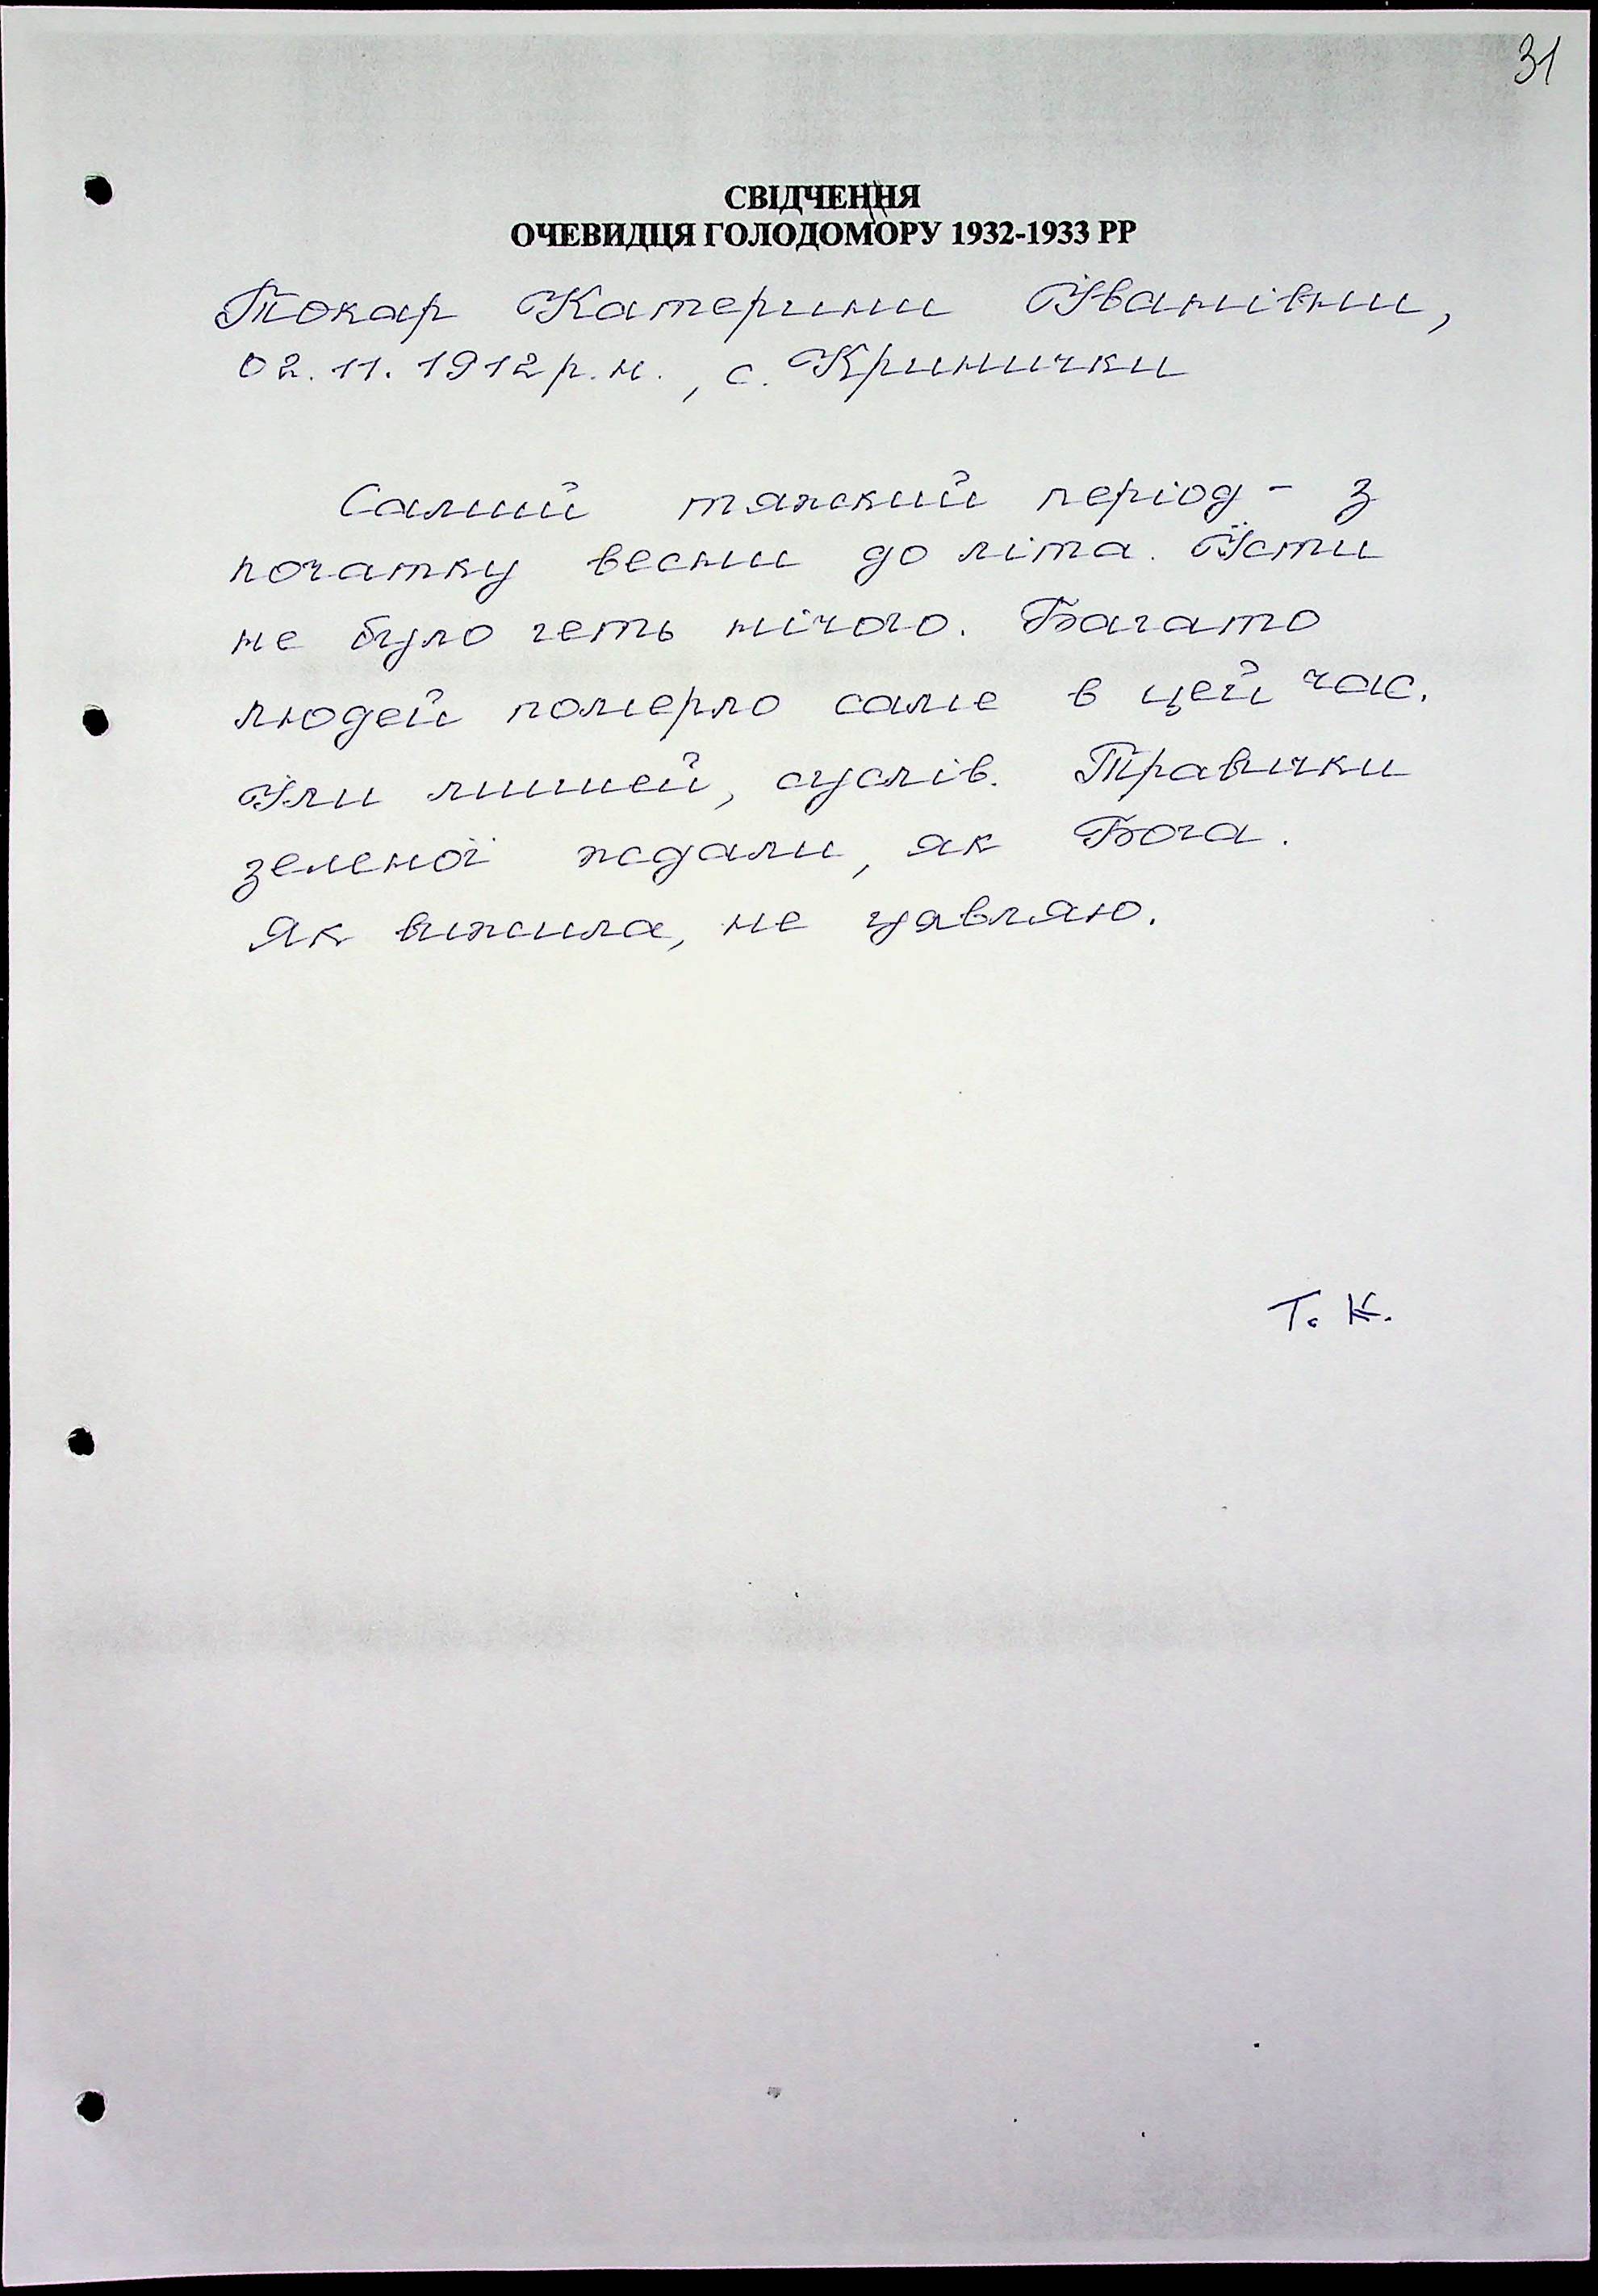 31
СВІДЧЕННЯ
ОЧЕВИДЦЯ ГОЛОДОМОРУ 1932-1933 РР
Токар Катерини Іванівни,
02.11.1912 р.н., с. Кринички
Самий тяжкий період - з
початку весни до літа. Їсти
не було геть нічого. Багато
людей померло саме в цей час.
Їли мишей, суслів. Травички
зеленої ждали, як Бога.
Як вижила, не уявляю.
Т. К.